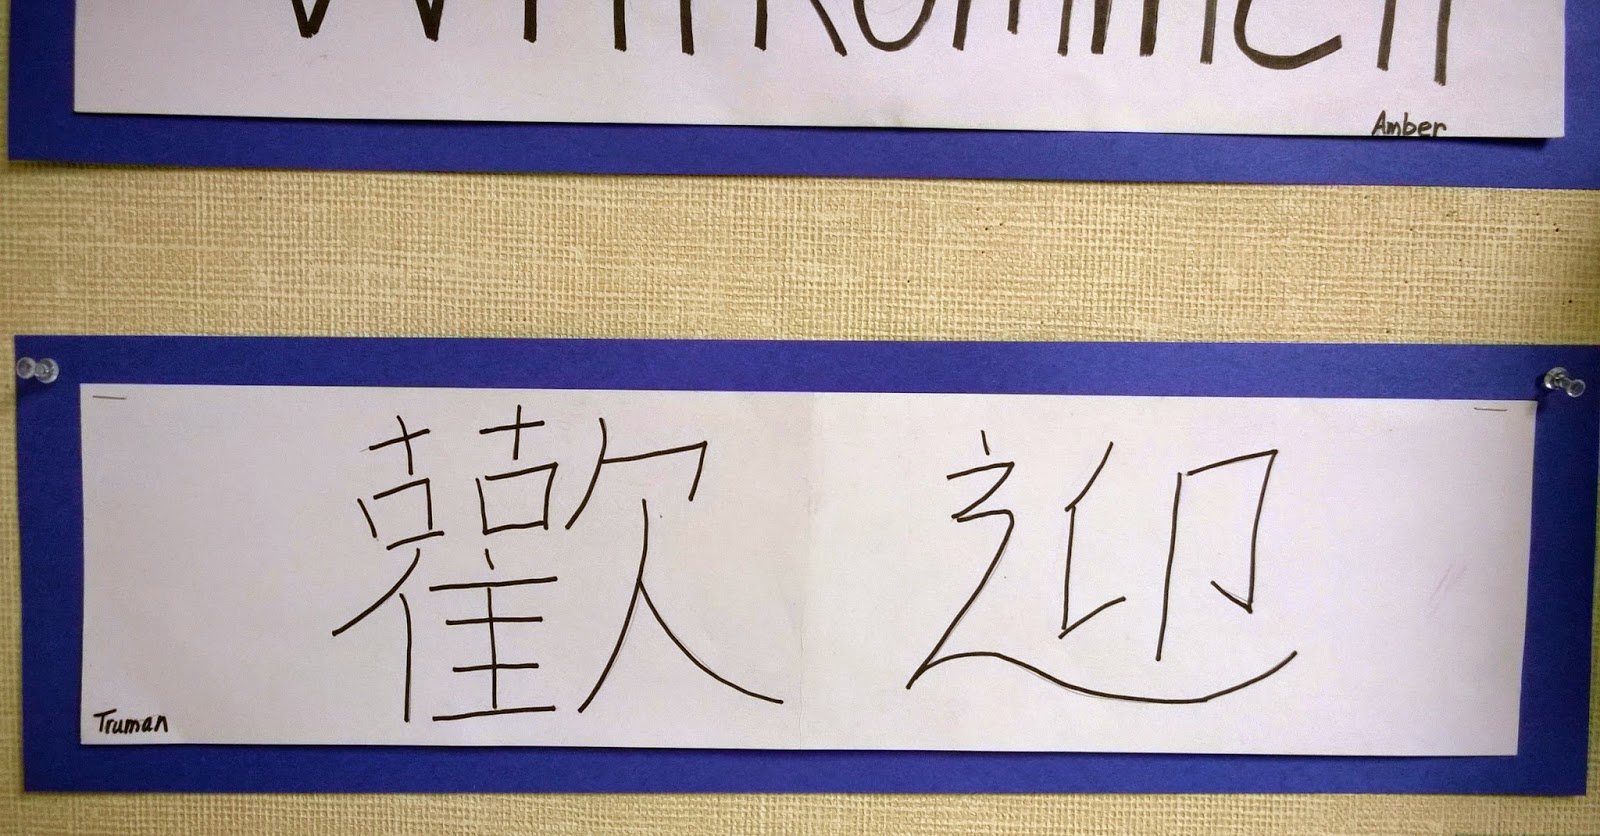 Willkommen
Amber
歡迎
Truman